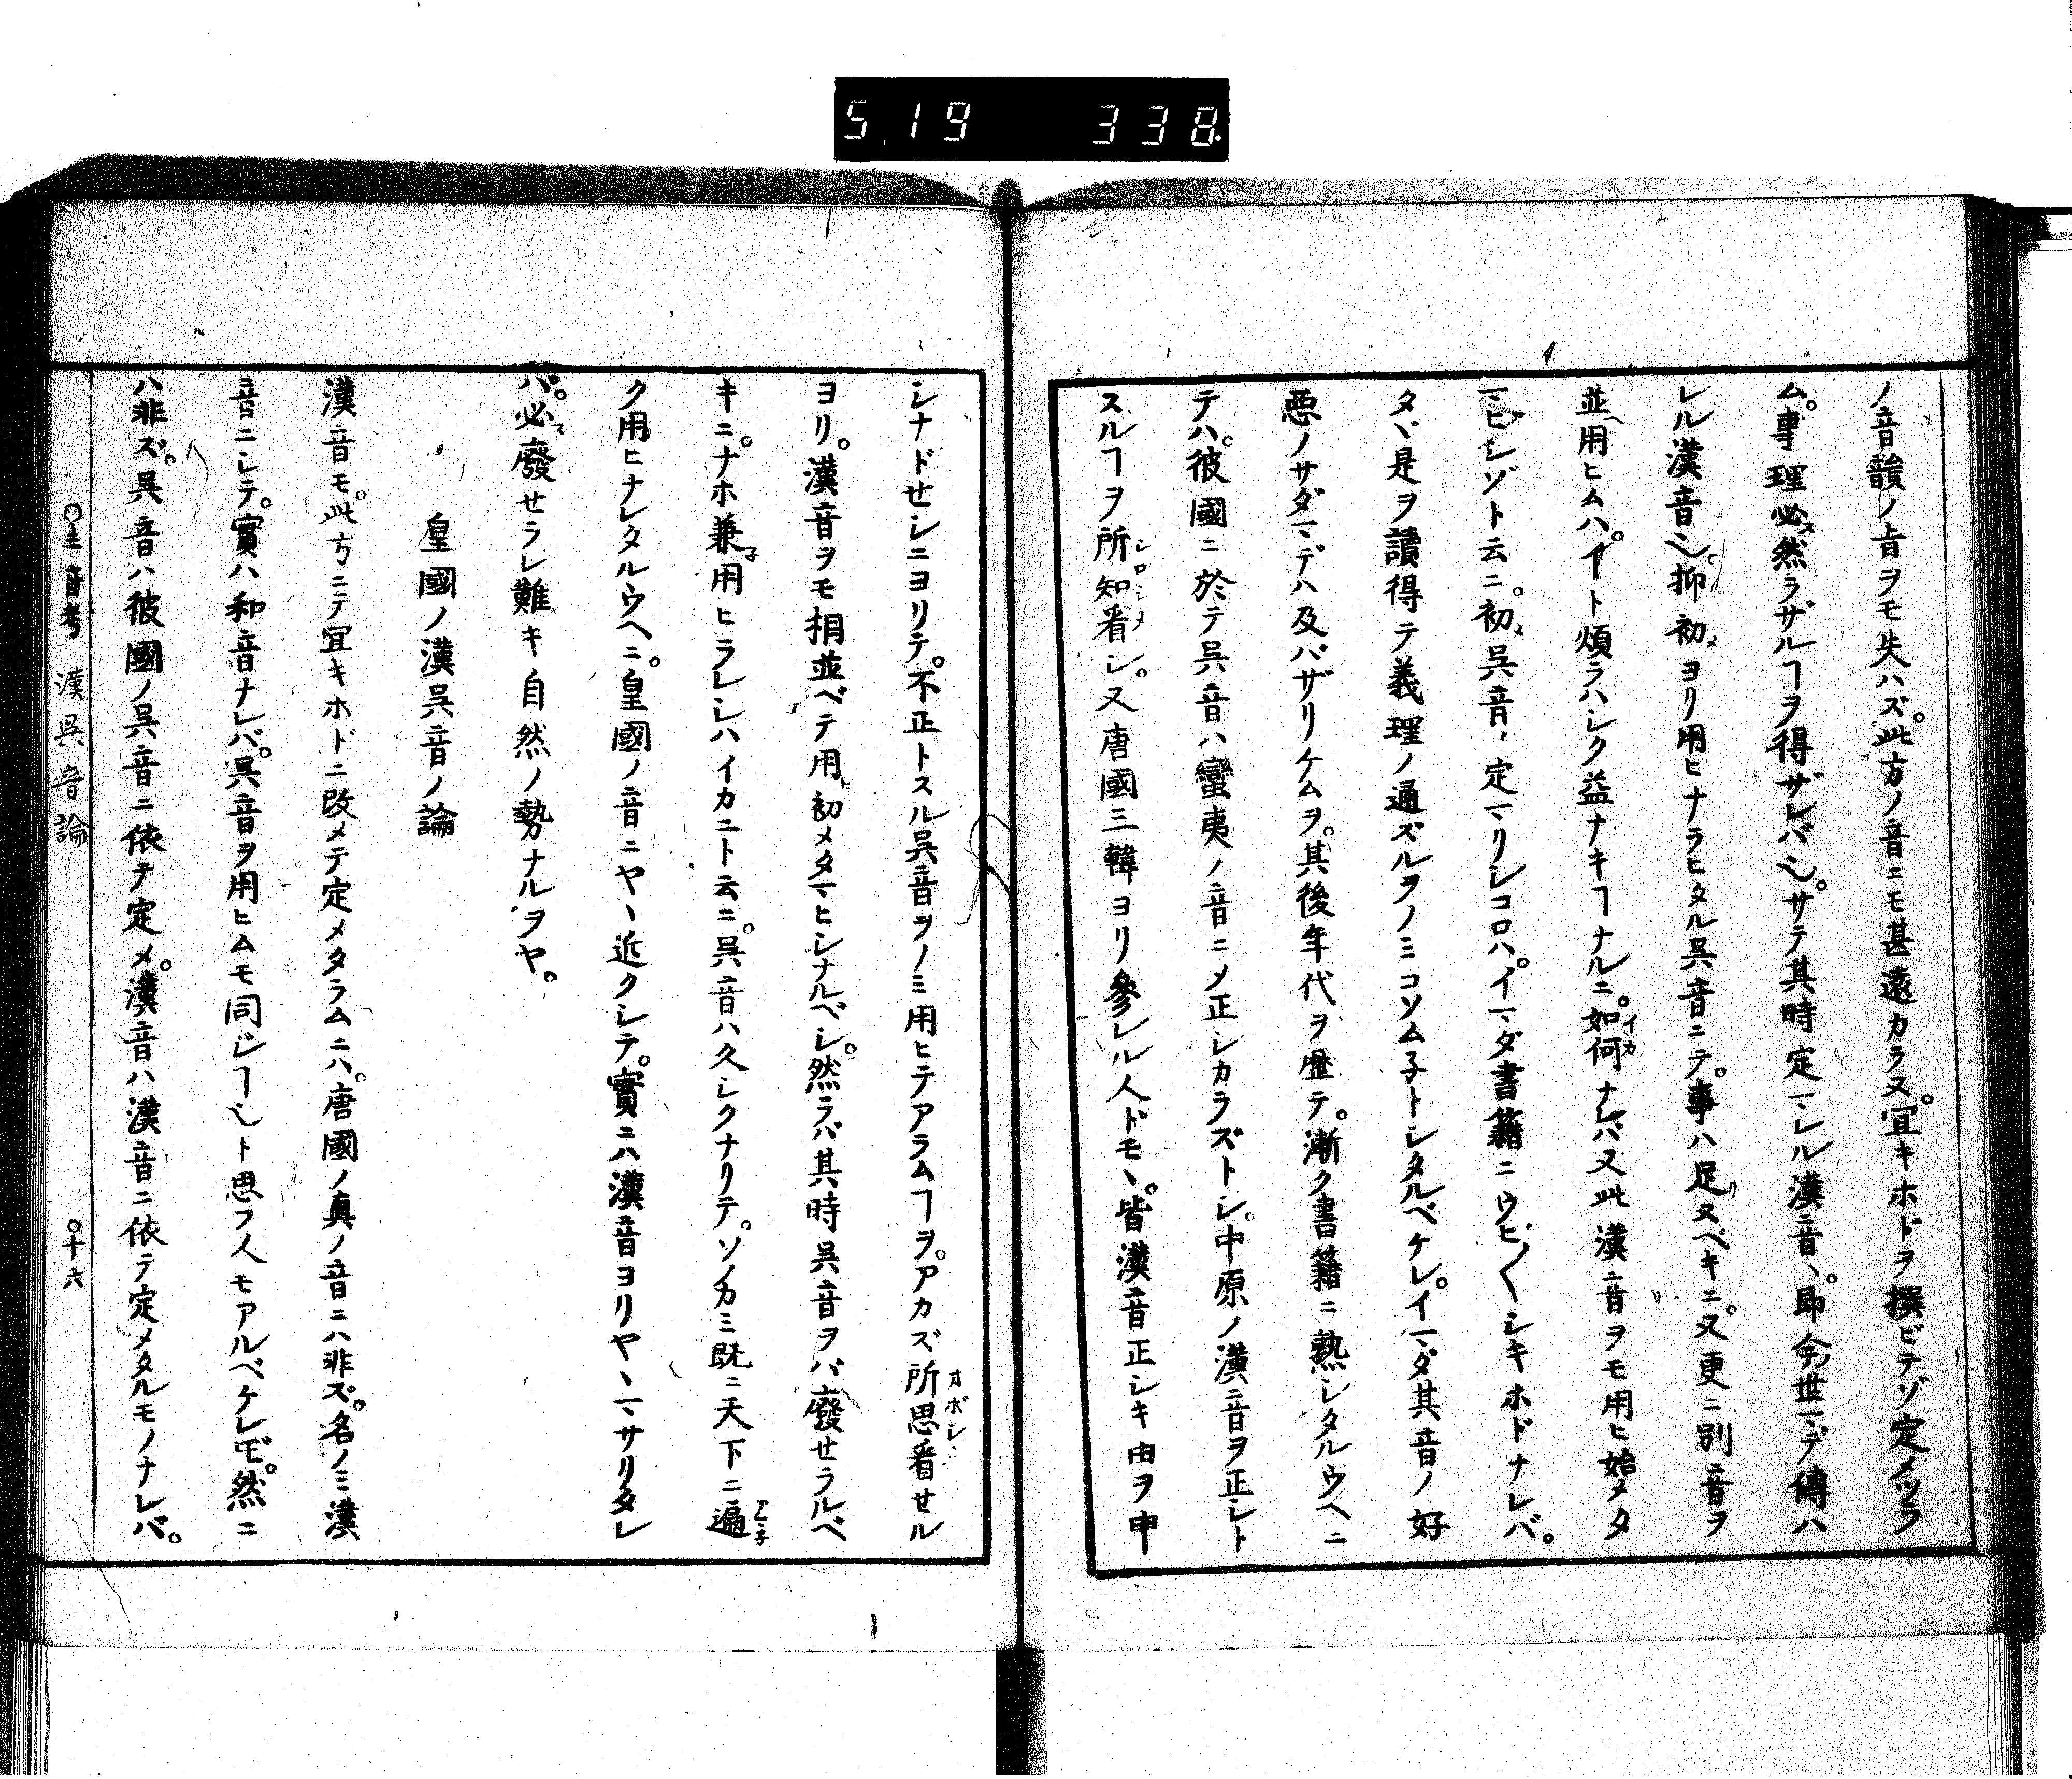 5.19 338.
ノ音韻ノ旨ヲモ失ハズ。此方ノ音ニモ甚遠カラヌ。宜キホドヲ撰ビテゾ定メツラ
ム。事理必ズ然ラザルヿヲ得ザレバ也。サテ其時定マレル漢音、即今ノ世マデ傳ハ
レル漢音也。抑初メヨリ用ヒナラヒタル呉音ニテ。事ハ足リヌベキニ。又更ニ別音ヲ
並ヘ用ヒムハ。イト煩ラハシク益ナキヿナルニ。如何イカナレバ又此漢音ヲモ用ヒ始メタ
マヒシゾト云ニ。初メ呉音ノ定マリシコロハ。イマダ書籍ニウヒ〳〵シキホドナレバ。
タヾ是ヲ讀得テ義理ノ通ズルヲノミコソム子トシタルベケレ。イマダ其音ノ好
悪ノサダマデハ及バザリケムヲ。其後年代ヲ歴テ。漸ク書籍ニ熟シタルウヘニ
テハ。彼國ニ於テ呉音ハ蠻夷ノ音ニメ正シカラズトシ。中原ノ漢音ヲ正シト
スルヿヲ所知看シロシメシ。又唐國三韓ヨリ參レル人ドモヽ。皆漢音正シキ由ヲ申
シナドセシニヨリテ。不正トスル呉音ヲノミ用ヒテアラムヿヲ。アカズ所思看オボシセル
ヨリ。漢音ヲモ相並ベテ用ヒ初メタマヒシナルベシ。然ラバ其時呉音ヲバ廢セラルベ
キニ。ナホ兼子用ヒラレシハイカニト云ニ。呉音ハ久シクナリテ。ソノカミ既ニ天下ニ遍アマ子
ク用ヒナレタルウヘニ。皇國ノ音ニヤヽ近クシテ。實ニハ漢音ヨリヤヽマサリタレ
バ。必ズ廢セラレ難キ自然ノ勢ナルヲヤ。
皇國ノ漢呉音ノ論
漢音モ。此方ニテ宜キホドニ改メテ定メタラムニハ。唐國ノ真ノ音ニハ非ズ。名ノミ漢
音ニシテ。實ハ和音ナレバ。呉音ヲ用ヒムモ同ジヿ也ト思フ人モアルベケレ𪜈。然ニ
ハ非ズ。呉音ハ彼國ノ呉音ニ依テ定メ。漢音ハ漢音ニ依テ定メタルモノナレバ。
〇三音考 漢呉音論 〇十六